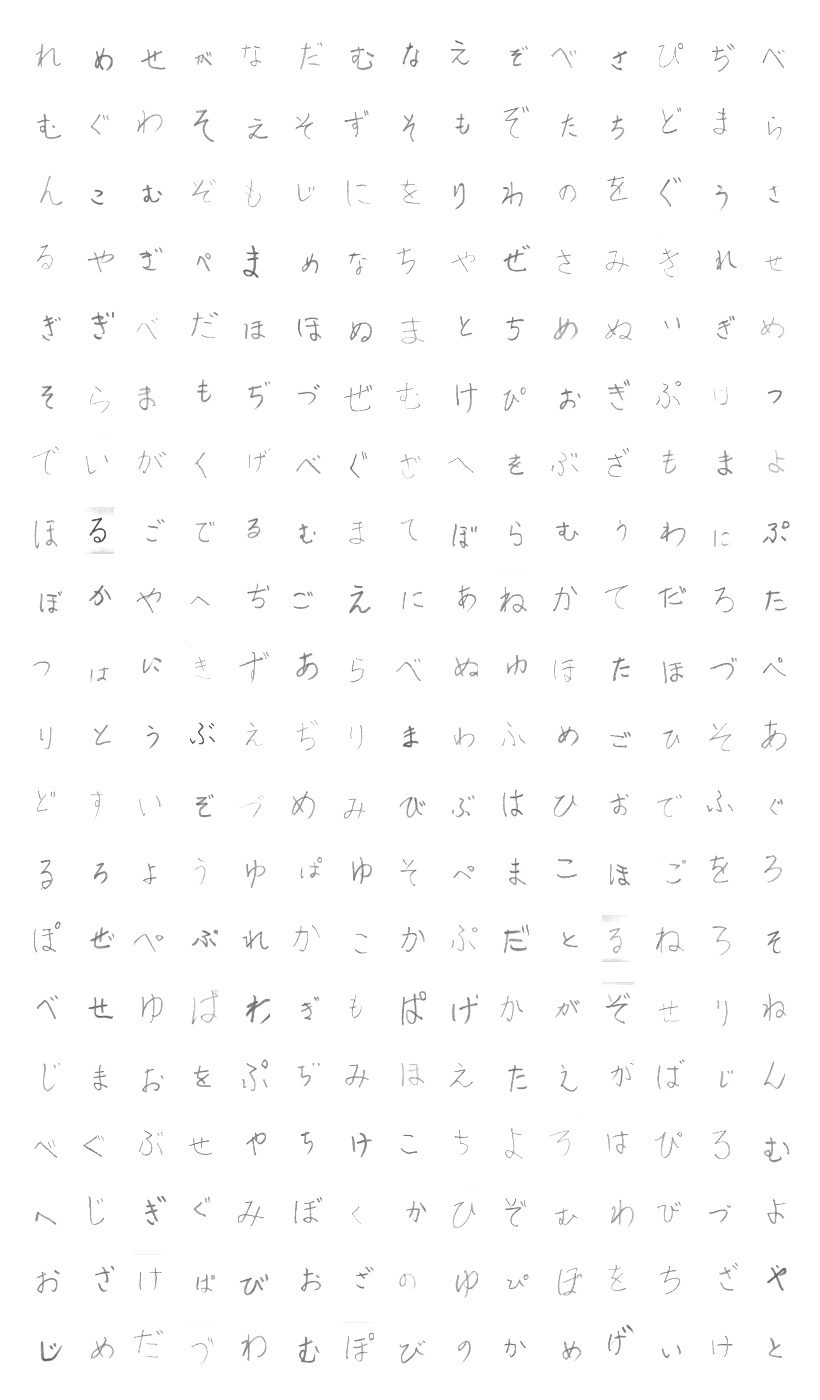 れめせがなだむなえぞべさぴぢべ
むぐわそえそずそもぞたちどまら
んこむぞもじにをりわのをぐうさ
るやぎぺまめなちやぜさみきれせ
ぎぎべだほほぬまとちめぬいぎめ
そらまもぢづぜむけぴおぎぷりつ
でいがくげべぐざへをぶざもまよ
ほるごでるむまてぼらむうわにぷ
ぼかやへぢごえにあねかてだろた
つはいきずあらべぬゆほたほづぺ
りとうぶえぢりまわふめごひそあ
どすいぞづめみびぶはひおでふぐ
るろようゆぱゆそぺまこほごをろ
ぽぜぺぷれかこかぷだとるねろそ
べせゆばわぎもぱげかがぞせりね
じまおをぷぢみほえたえがばじん
べぐぶせやちけこちよろはぴろむ
へじぎぐみぼくかひぞむわびづよ
おざけぱびおざのゆぴぼをちざや
じめだづわむぽびのかめげいけと